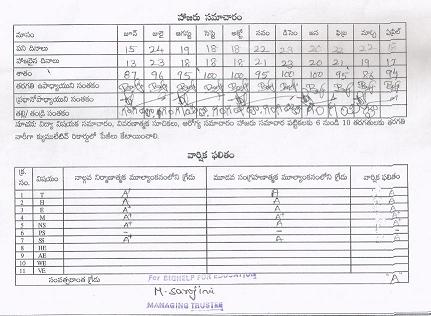 హాజరు సమాచారం
మాసం జూన్ జులై ఆగష్టు సెప్టె అక్టో నవం డిసెం జన ఫిబ్ర మార్చి ఏప్రిల్
పని దినాలు 15 24 19 18 18 22 22 18
హాజరైన దినాలు 13 23 18 18 18 21 23 20 21 19 17
శాతం 87 96 95 100 100 95 100 100 95 86 94
తరగతి ఉపాధ్యాయుని సంతకం
ప్రధానోపాధ్యాయుని సంతకం
తల్లి/ తండ్రి సంతకం
సమాచారం, వివరణాత్మక సూచికలు, ఆరోగ్య సమాచారం హాజరు సమాచార పట్టికలకు 6 నుండి 10 తరగతులకు తరగతి
వారీగా క్యుములేటివ్ రికార్డులో పేజీలు కేటాయించాలి.
వార్షిక ఫలితం
క్ర. సం. విషయం నాల్గవ నిర్మాణాత్మక మూల్యాంకనంలోని గ్రేడు మూడవ సంగ్రహణాత్మక మూల్యాంకనంలోని గ్రేడు వార్షిక ఫలితం
1 T A+ A A
2 H A A A
3 E A A
4 M A+ A+ A
5 NS A+ A A
6 PS - - -
7 SS A+ A A
8 HE
9 AE
10 WE
11 VE
సంవత్సరాంత గ్రేడు "A"
For BIGHELP FOR EDUCATION
M. Sarojini
MANAGING TRUSTEE